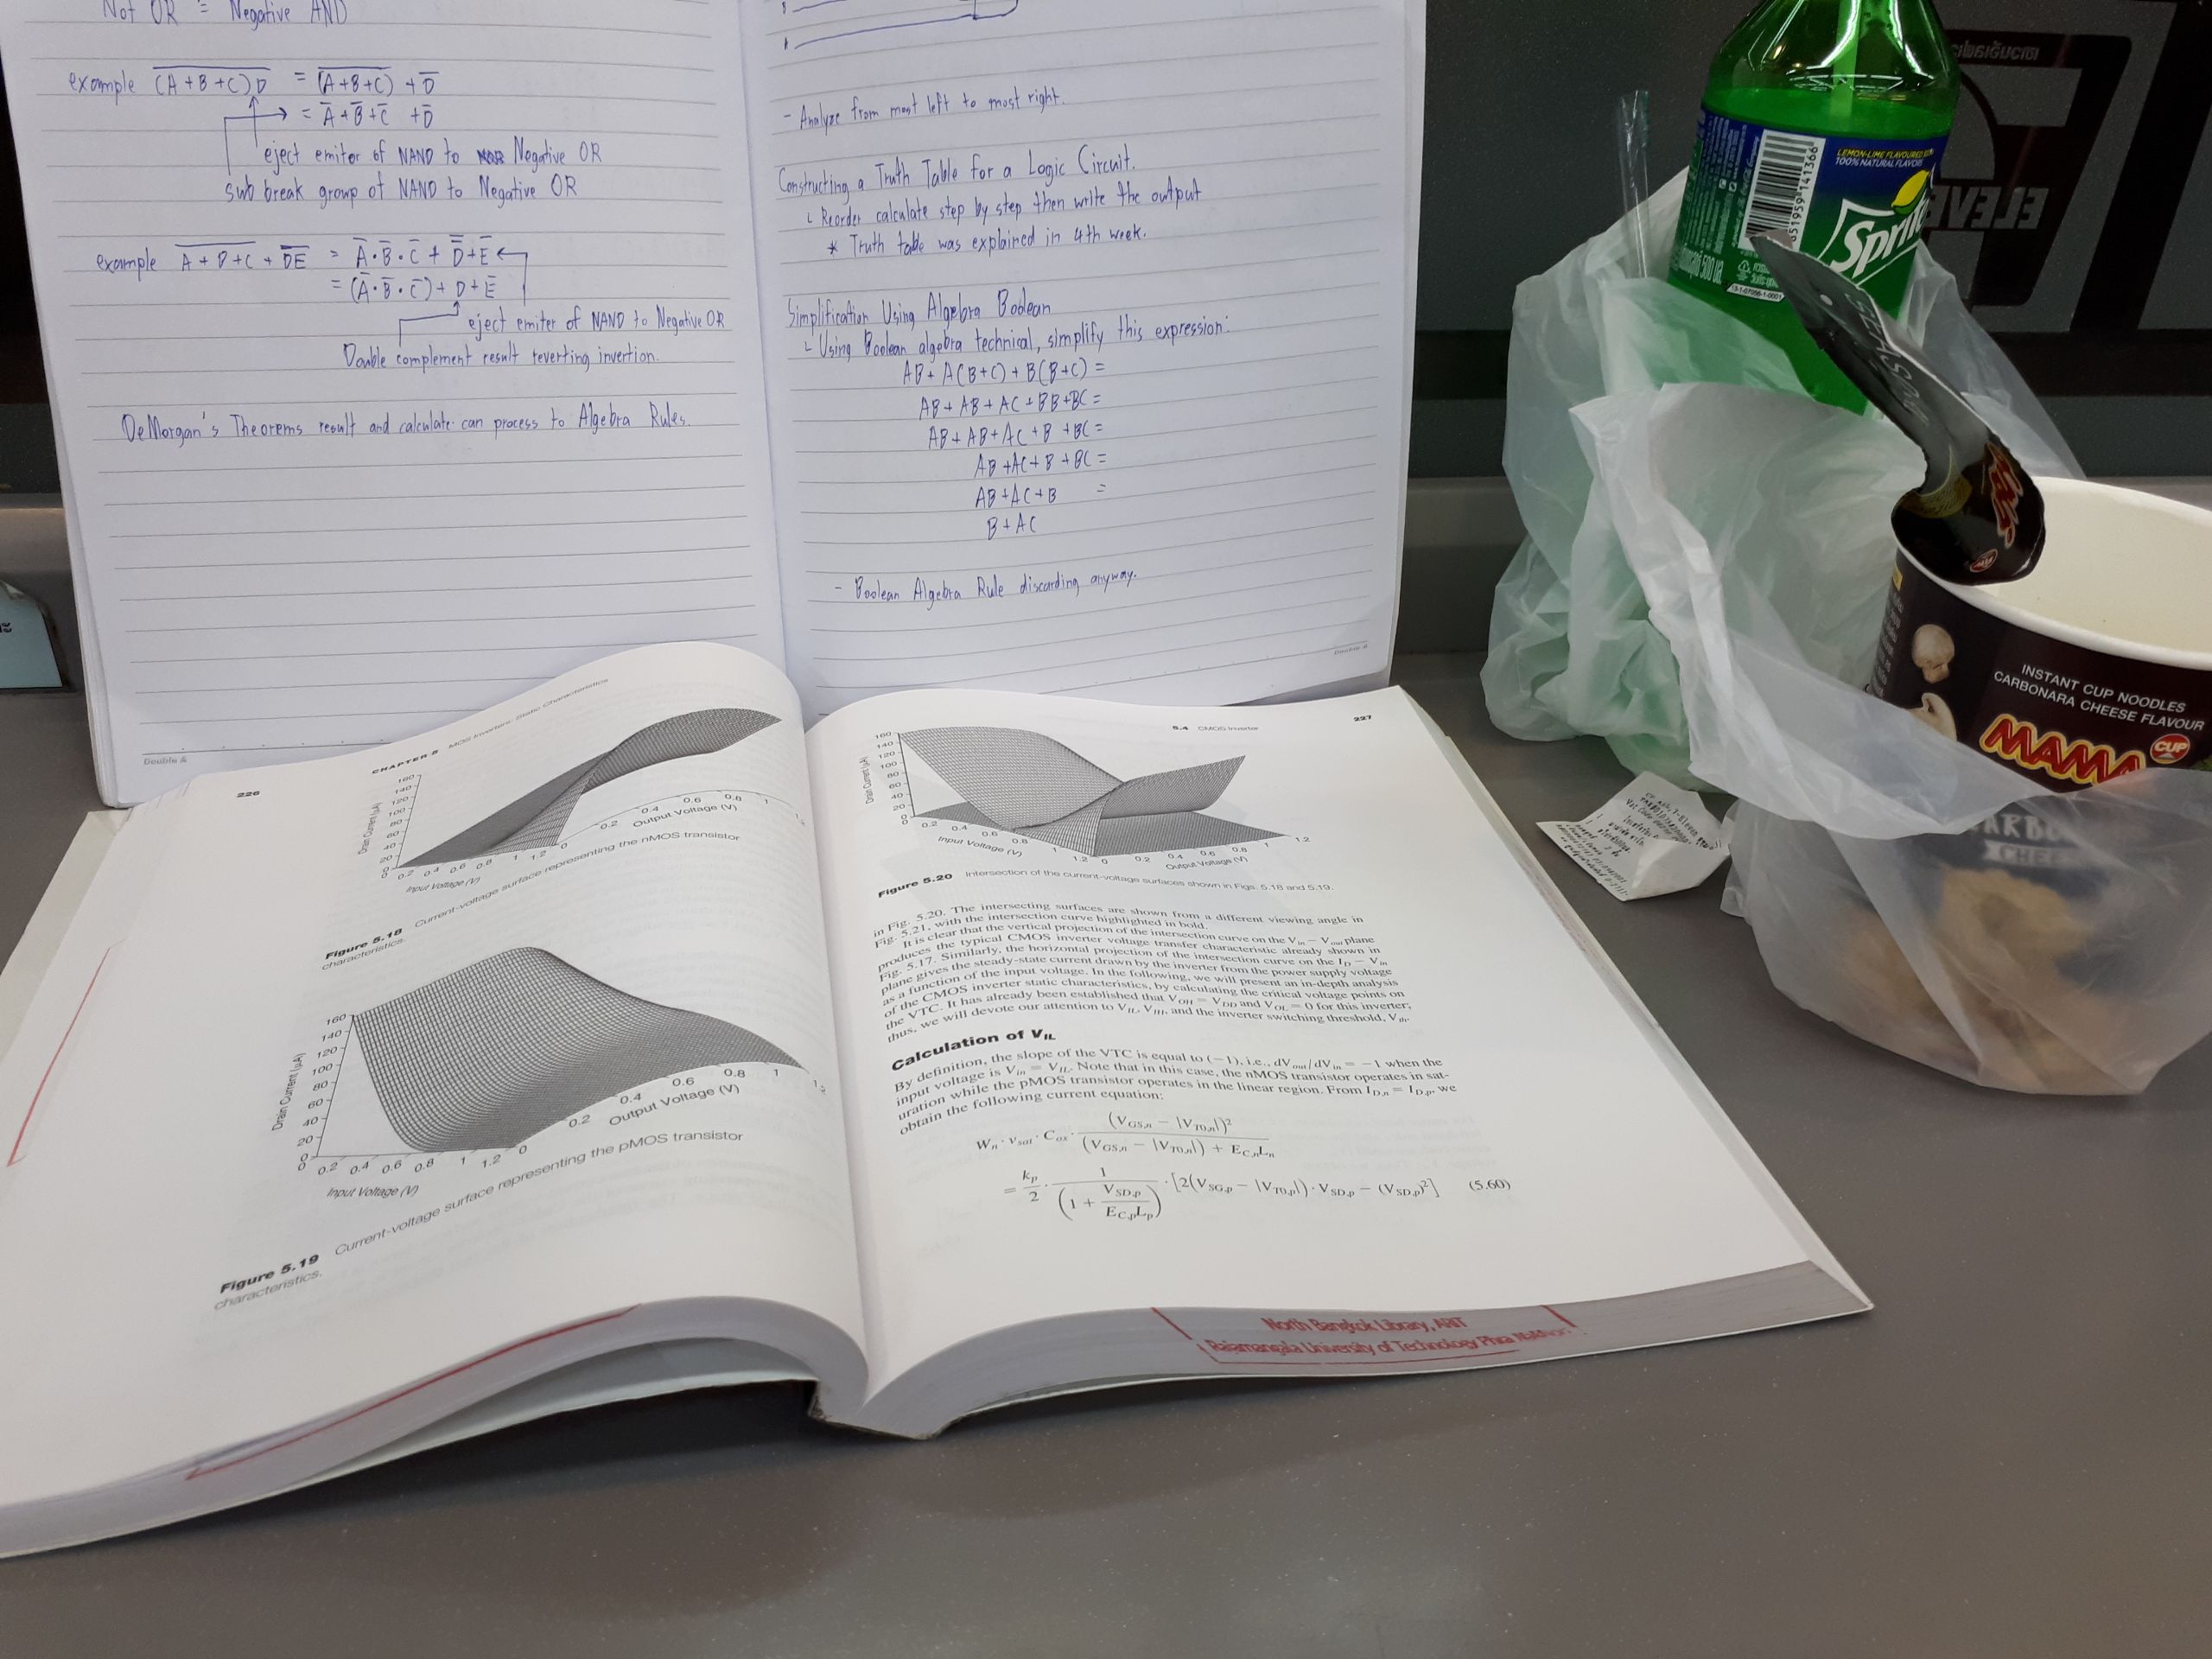 Not OR = Negative AND
example (A+B+C)D = (A+B+C) + D̅
= A̅+B̅+C̅ +D̅
eject emitor of NAND to NOR Negative OR
sub break group of NAND to Negative OR
example A+B+C + DE = A̅·B̅·C̅ + D̿+E̅
= (A̅·B̅·C̅) + D + E̅
eject emiter of NAND to Negative OR
Double complement result reverting invertion.
DeMorgan's Theorems result and calculate can process to Algebra Rules.
Double A
- Analyze from most left to most right.
Constructing a Truth Table for a Logic Circuit.
Reorder calculate step by step then write the output
* Truth table was explained in 4th week.
Simplification Using Algebra Boolean
Using Boolean algebra technical, simplify this expression:
AB + A(B+C) + B(B+C) =
AB + AB + AC + BB + BC =
AB + AB + AC + B + BC =
AB + AC + B + BC =
AB + AC + B =
B + AC
- Boolean Algebra Rule discarding anyway.
Double A
226
CHAPTER 5 MOS Inverters: Static Characteristics
Drain Current (µA)
160
140
120
100
80
60
40
20
0
0 0.2 0.4 0.6 0.8 1 1.2
Input Voltage (V)
0 0.2 0.4 0.6 0.8 1
Output Voltage (V)
Figure 5.18 Current-voltage surface representing the nMOS transistor
characteristics.
Drain Current (µA)
160
140
120
100
80
60
40
20
0
0 0.2 0.4 0.6 0.8 1 1.2
Input Voltage (V)
0 0.2 0.4 0.6 0.8 1
Output Voltage (V)
Figure 5.19 Current-voltage surface representing the pMOS transistor
characteristics.
5.4 CMOS Inverter 227
Drain Current (µA)
160
140
120
100
80
60
40
20
0
0 0.2 0.4 0.6 0.8 1 1.2
Input Voltage (V)
0 0.2 0.4 0.6 0.8 1 1.2
Output Voltage (V)
Figure 5.20 Intersection of the current-voltage surfaces shown in Figs. 5.18 and 5.19.
in Fig. 5.20. The intersecting surfaces are shown from a different viewing angle in
Fig. 5.21, with the intersection curve highlighted in bold.
It is clear that the vertical projection of the intersection curve on the Vin – Vout plane
produces the typical CMOS inverter voltage transfer characteristic already shown in
Fig. 5.17. Similarly, the horizontal projection of the intersection curve on the ID – Vin
plane gives the steady-state current drawn by the inverter from the power supply voltage
as a function of the input voltage. In the following, we will present an in-depth analysis
of the CMOS inverter static characteristics, by calculating the critical voltage points on
the VTC. It has already been established that VOH = VDD and VOL = 0 for this inverter;
thus, we will devote our attention to VIL, VIH, and the inverter switching threshold, Vth.
Calculation of VIL
By definition, the slope of the VTC is equal to (−1), i.e., dVout/dVin = −1 when the
input voltage is Vin = VIL. Note that in this case, the nMOS transistor operates in sat-
uration while the pMOS transistor operates in the linear region. From ID,n = ID,p, we
obtain the following current equation:
Wn · vsat · Cox · (VGS,n − |VT0,n|)² / (VGS,n − |VT0,n|) + EC,nLn
= kp/2 · 1/(1 + VSD,p/EC,pLp) · [2(VSG,p − |VT0,p|) · VSD,p − (VSD,p)²] (5.60)
North Bangkok Library, ARIT
Rajamangala University of Technology Phra Nakhon
ELEVEN
LEMON-LIME FLAVOURED
100% NATURAL FLAVOUR
8 851959 141366
Sprite
INSTANT CUP NOODLES
CARBONARA CHEESE FLAVOUR
MAMA
CUP